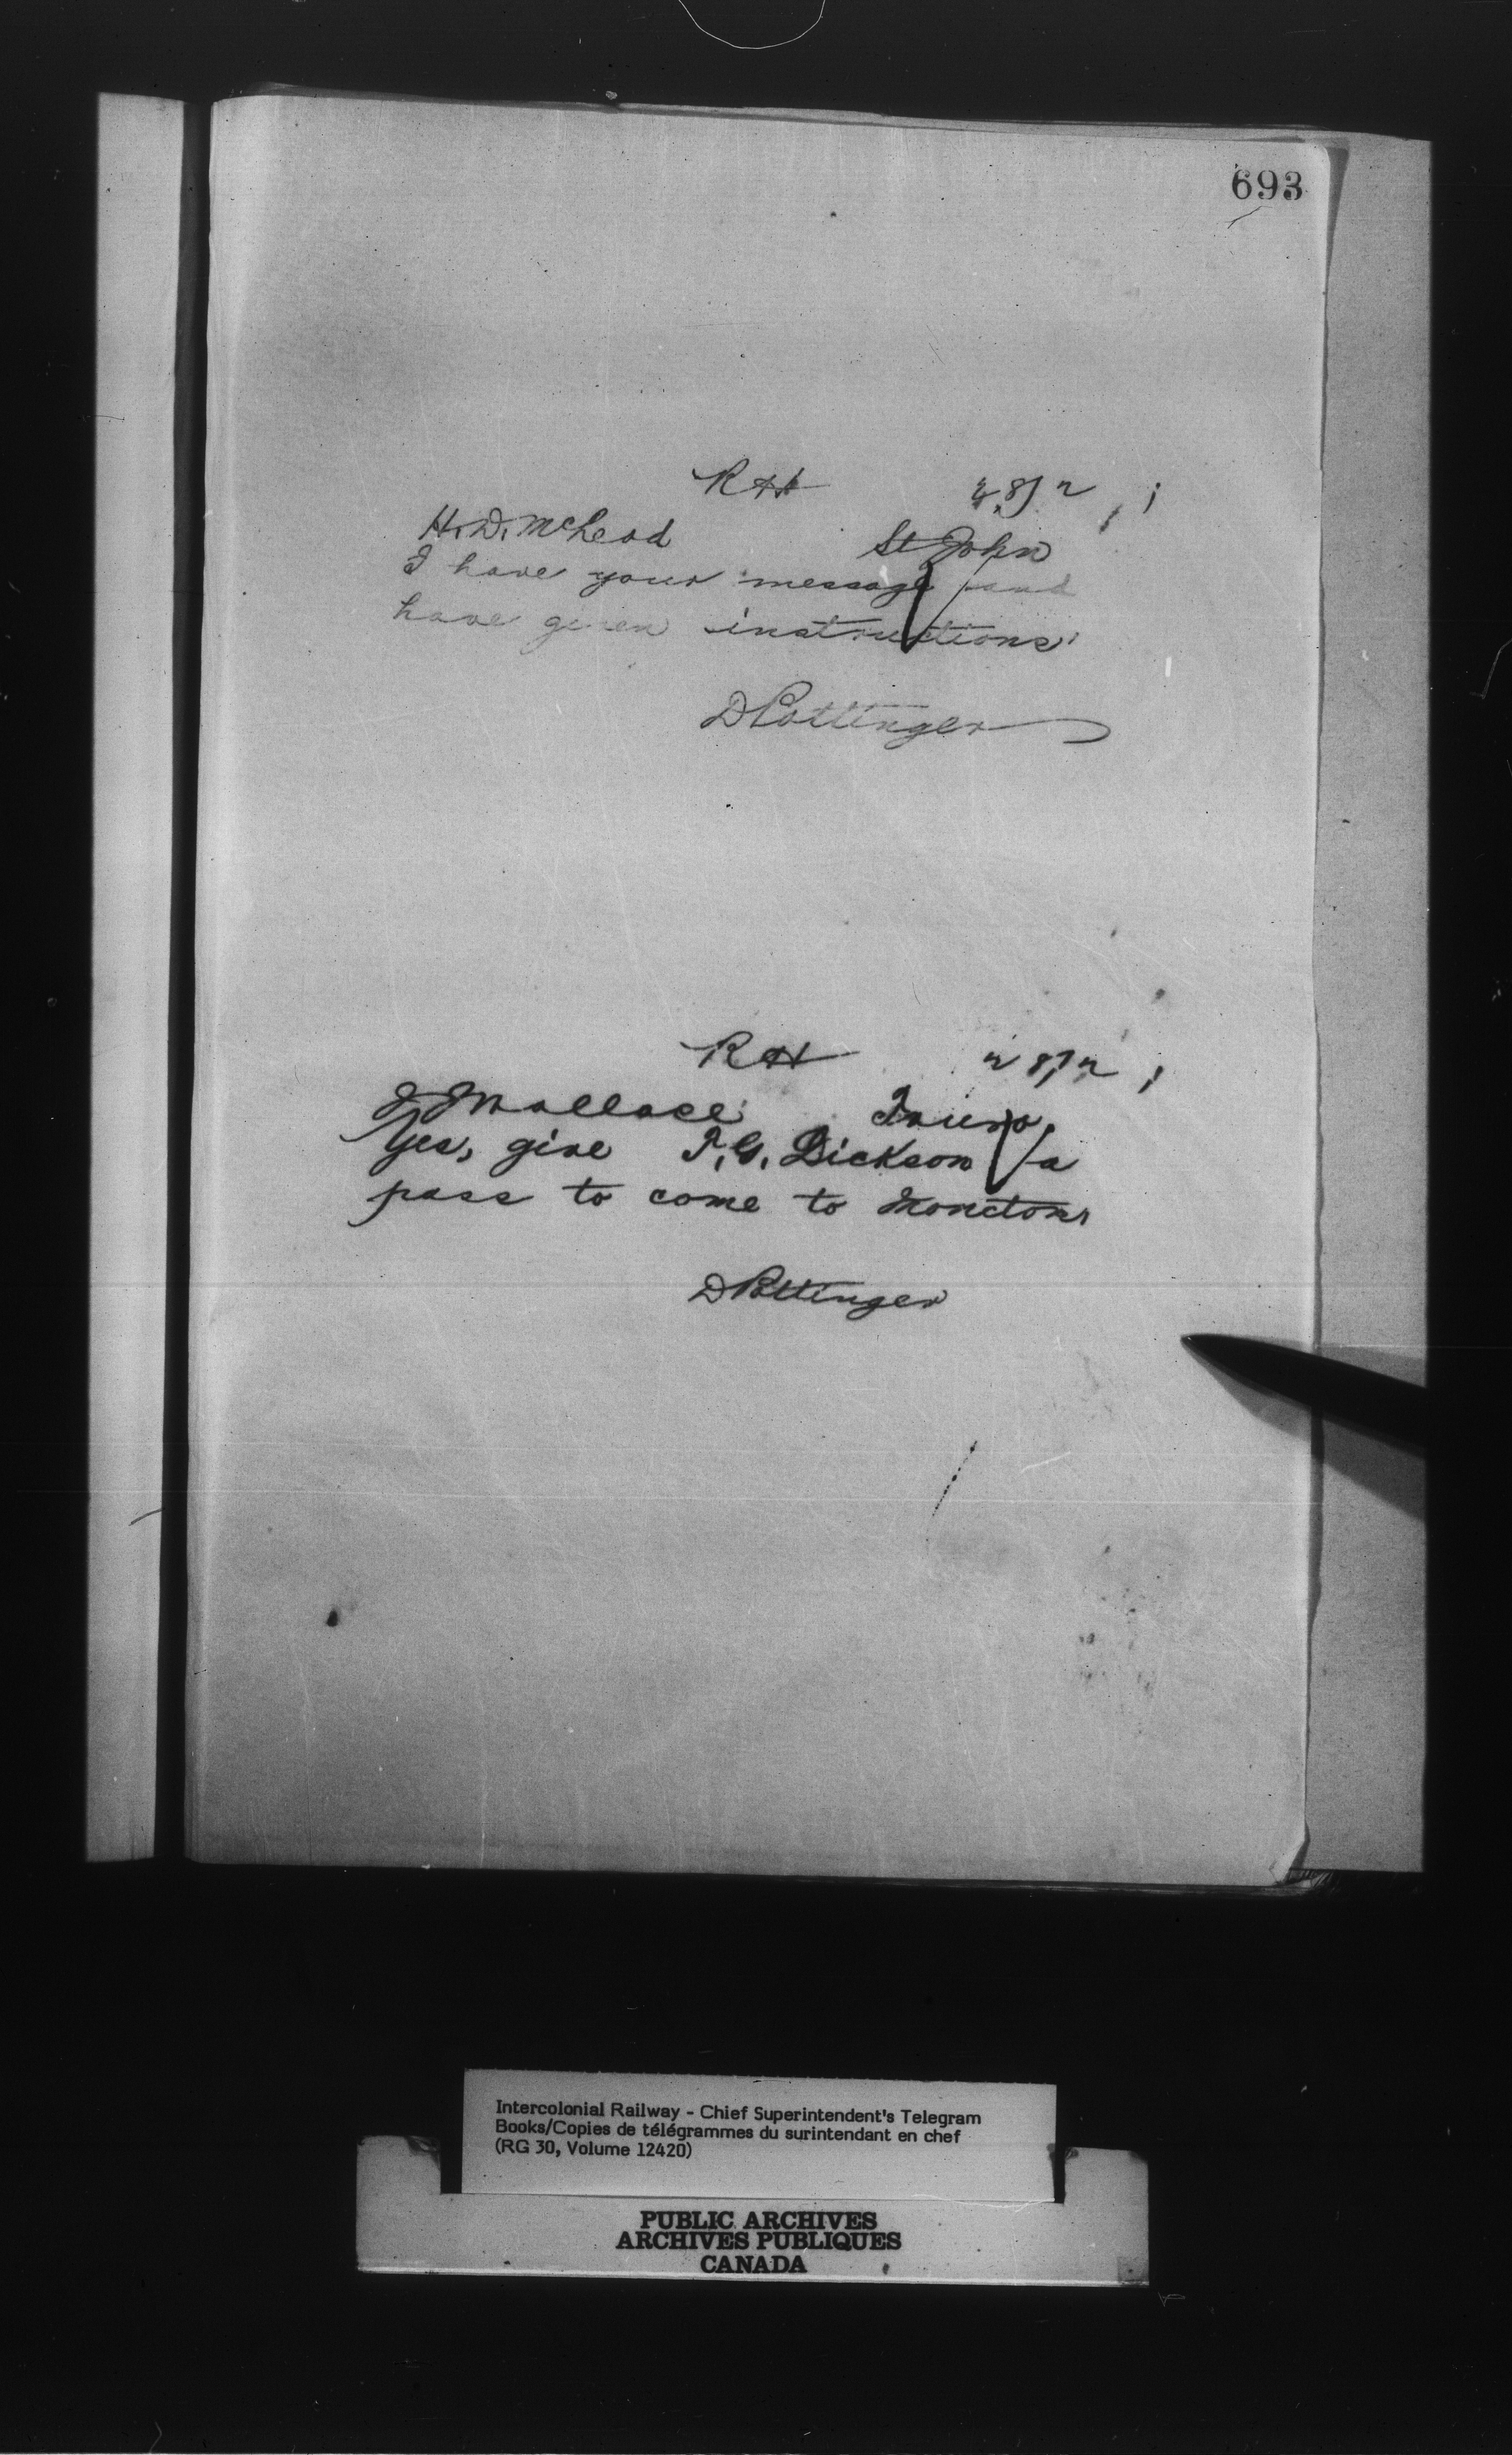 693
RH
H. D. McLeod St John
I have your message and
have given instructions
D Pottinger
RH
J J Wallace Truro
Yes, give T. G. Dickson a
pass to come to Moncton
D Pottinger
Intercolonial Railway - Chief Superintendent's Telegram
Books/Copies de télégrammes du surintendant en chef
(RG 30, Volume 12420)
PUBLIC ARCHIVES
ARCHIVES PUBLIQUES
CANADA